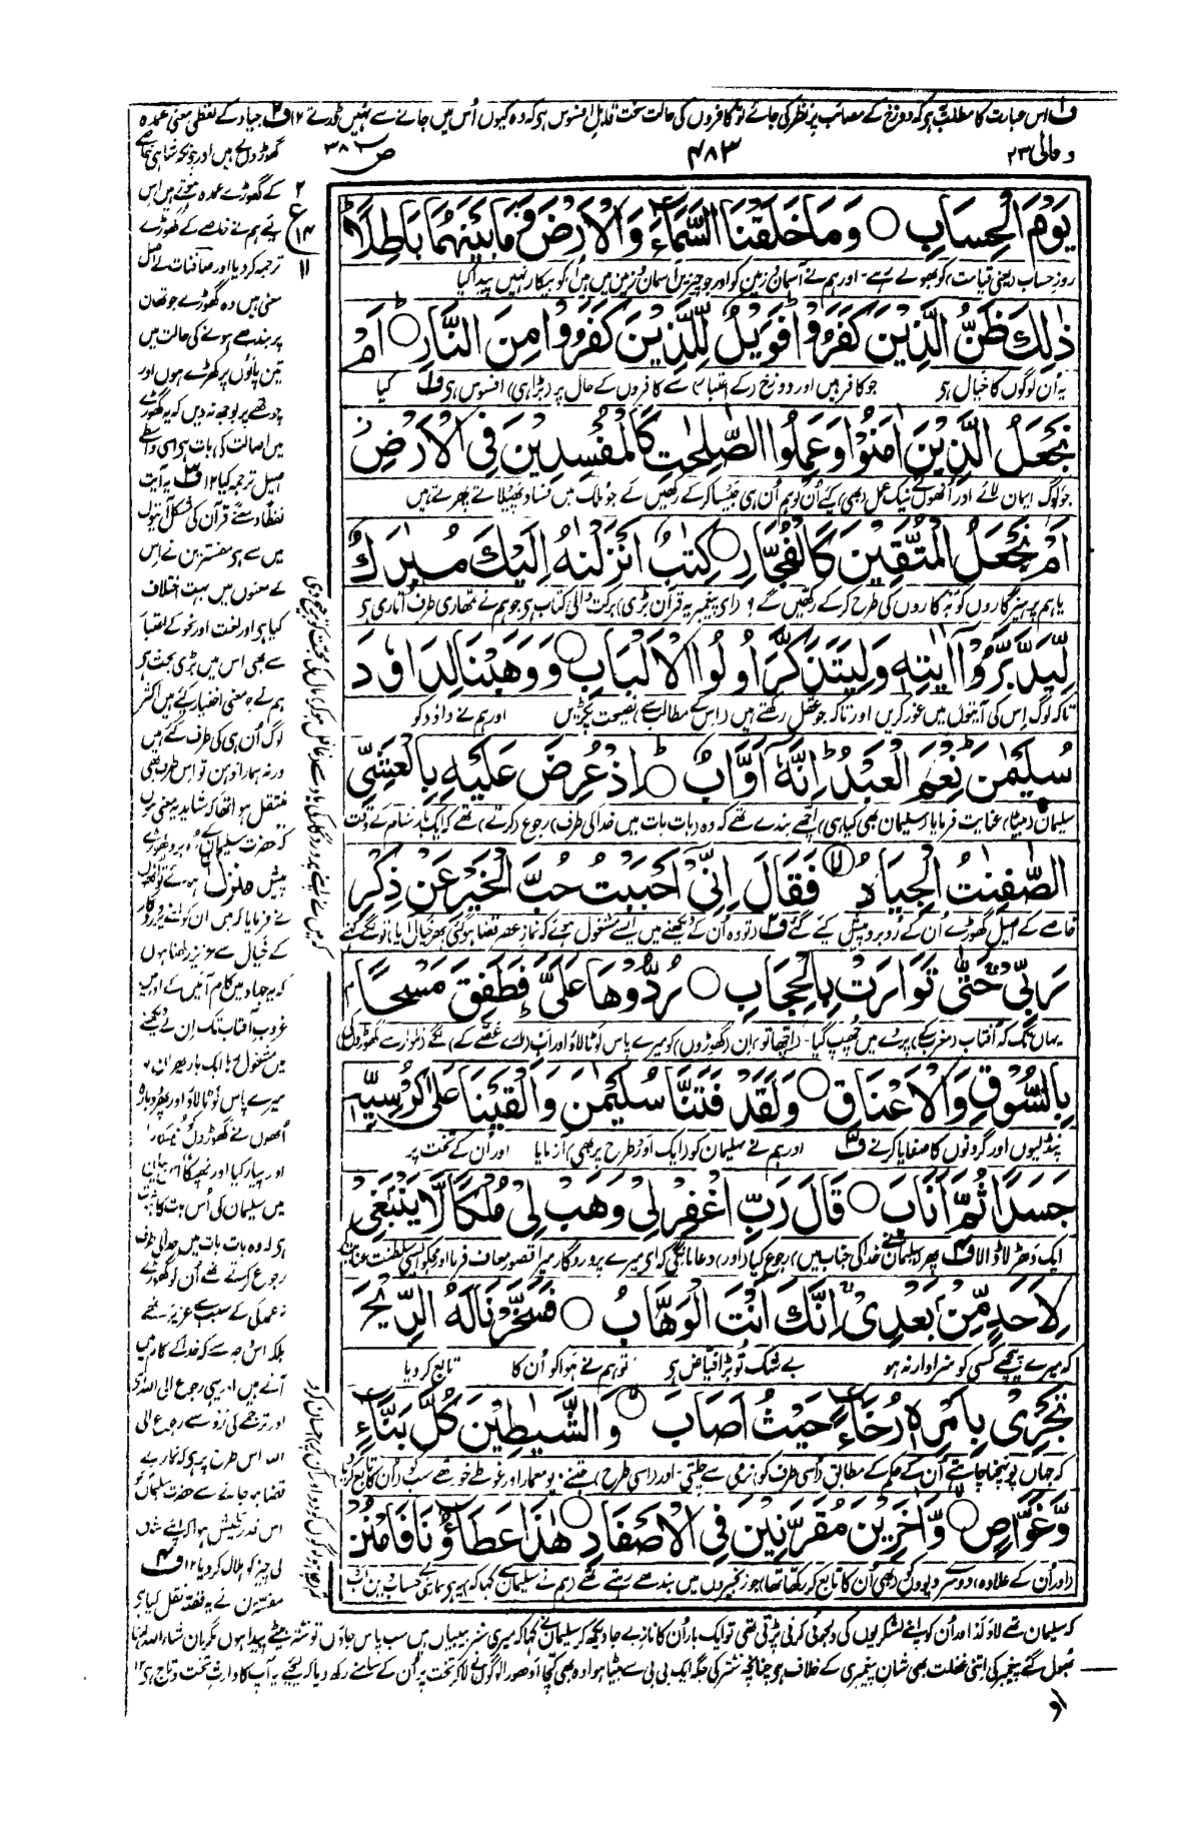 ف۱ اس عبارت کا مطلب یہ ہے کہ دوزخ کے مصائب پر نظر کی جائے تو کافروں کی حالت سخت قابل افسوس ہی کہ وہ کیوں اُس میں جانے سے نہیں ڈرتے ۱۲ ف۲ جیاد کے لفظی معنی عمدہ
ومالی ۲۳
۴۸۳
ص ۳۸
يَوْمَ الْحِسَابِ ○ وَمَا خَلَقْنَا السَّمَآءَ وَالْاَرْضَ وَمَا بَيْنَهُمَا بَاطِلًا ؕ
روزِ حساب (یعنی قیامت) کو بھولے رہے۔ اور ہم نے آسمان و زمین کو اور جو چیزیں آسمان و زمین میں ہیں اُن کو بیکار نہیں پیدا کیا
ذٰلِكَ ظَنُّ الَّذِيْنَ كَفَرُوْا ۚ فَوَيْلٌ لِّلَّذِيْنَ كَفَرُوْا مِنَ النَّارِ ؕ○ اَمْ
یہ اُن لوگوں کا خیال ہی جو کافر ہیں اور دوزخ (کے اعتبار) سے کافروں کے حال پر (بڑا ہی) افسوس ہی ف۱ کیا
نَجْعَلُ الَّذِيْنَ اٰمَنُوْا وَعَمِلُوا الصّٰلِحٰتِ كَالْمُفْسِدِيْنَ فِى الْاَرْضِ
جو لوگ ایمان لائے اور اُنھوں نے نیک عمل (بھی) کیے اُن کو ہم اُن ہی جیسا کر کے رکھیں گے جو ملک میں فساد پھیلاتے پھرتے ہیں
اَمْ نَجْعَلُ الْمُتَّقِيْنَ كَالْفُجَّارِ ○ كِتٰبٌ اَنْزَلْنٰهُ اِلَيْكَ مُبٰرَكٌ
یا ہم پرہیزگاروں کو بدکاروں کی طرح کر کے رکھیں گے ؟ (اے پیغمبر یہ قرآن بڑی) برکت والی کتاب ہی جو ہم نے تمھاری طرف اُتاری ہی
لِّيَدَّبَّرُوْۤا اٰيٰتِهٖ وَلِيَتَذَكَّرَ اُولُوا الْاَلْبَابِ ○ وَوَهَبْنَا لِدَاوٗدَ
تاکہ لوگ اِس کی آیتوں میں غور کریں اور تاکہ جو عقل رکھتے ہیں (اِس کے مطالب سے) نصیحت پکڑیں اور ہم نے داؤد کو
سُلَيْمٰنَ ؕ نِعْمَ الْعَبْدُ ؕ اِنَّهٗۤ اَوَّابٌ ؕ○ اِذْ عُرِضَ عَلَيْهِ بِالْعَشِىِّ
سلیمان (بیٹا) عنایت فرمایا (سلیمان بھی کیا ہی) اچھے بندے تھے کہ وہ (بات بات میں خدا کی طرف) رجوع (کرتے) تھے کہ ایک بار شام کے وقت
الصّٰفِنٰتُ الْجِيَادُ ۙ○ فَقَالَ اِنِّىْۤ اَحْبَبْتُ حُبَّ الْخَيْرِ عَنْ ذِكْرِ
خاصے کے اصیل گھوڑے اُن کے روبرو پیش کیے گئے ف۲ (تو وہ اُن کے دیکھنے میں ایسے مشغول ہوئے کہ نماز عصر قضا ہو گئی پھر خیال آیا) تو لگے کہنے
رَبِّىْ ۚ حَتّٰى تَوَارَتْ بِالْحِجَابِ ○ رُدُّوْهَا عَلَىَّ ؕ فَطَفِقَ مَسْحًۢا
یہاں تک کہ آفتاب (مغرب کے) پردے میں چھپ گیا۔ (اچھا تو) اِن (گھوڑوں) کو میرے پاس لوٹا لاؤ اور اب (مارے غصے کے) لگے (تلوار سے گھوڑوں کی)
بِالسُّوْقِ وَالْاَعْنَاقِ ○ وَلَقَدْ فَتَنَّا سُلَيْمٰنَ وَاَلْقَيْنَا عَلٰى كُرْسِيِّهٖ
پنڈلیوں اور گردنوں کا صفایا کرنے ف۳ اور ہم نے سلیمان کو (ایک اَور طرح پر بھی) آزمایا اور اُن کے تخت پر
جَسَدًا ثُمَّ اَنَابَ ○ قَالَ رَبِّ اغْفِرْ لِىْ وَهَبْ لِىْ مُلْكًا لَّا يَنْۢبَغِىْ
ایک دھڑ لا ڈالا ف۴ پھر (سلیمان نے خدا کی جناب میں) رجوع کیا (اور) دعا مانگی کہ ای میرے پروردگار میرا قصور معاف فرما اور مجھکو ایسی سلطنت عنایت
لِاَحَدٍ مِّنْۢ بَعْدِىْ ۚ اِنَّكَ اَنْتَ الْوَهَّابُ ○ فَسَخَّرْنَا لَهُ الرِّيْحَ
کہ میرے پیچھے کسی کو سزاوار نہ ہو بے شک تو بڑا فیاض ہی تو ہم نے ہوا کو اُن کا تابع کر دیا
تَجْرِىْ بِاَمْرِهٖ رُخَآءً حَيْثُ اَصَابَ ۙ○ وَالشَّيٰطِيْنَ كُلَّ بَنَّآءٍ
کہ جہاں پونہچنا چاہتے اُن کے حکم کے مطابق (اُسی طرف کو) نرمی سے چلتی۔ اور (اسی طرح) جتنے دیو معمار اور غوطے خور تھے سب کو (اُن کا تابع کر دیا)
وَّغَوَّاصٍ ۙ○ وَّاٰخَرِيْنَ مُقَرَّنِيْنَ فِى الْاَصْفَادِ ○ هٰذَا عَطَآؤُنَا فَامْنُنْ
(اور اُن کے علاوہ) دوسرے دیووں کو (بھی اُن کا تابع کر رکھا تھا) جو زنجیروں میں بندھے رہتے تھے (ہم نے سلیمان سے کہا کہ) یہ ہماری بے حساب دین ہی
گھوڑے ہیں اور چونکہ شاہی
کے گھوڑے عمدہ ہوتے ہیں اس
لیے ہم نے خاصے کے گھوڑے
ترجمہ کر دیا اور صافنات کے اصل
معنی ہیں وہ گھوڑے جو تھان
پر بندھے ہونے کی حالت میں
تین پاؤں پر کھڑے ہوں اور
چوتھے پر بوجھ نہ دیں کہ یہ گھوڑے
میں اصالت کی بات ہی اسی واسطے
اصیل ترجمہ کیا ۱۲ ف۳ یہ آیت
قرآن کی مشکل آیتوں
میں سے ہی مفسرین نے اس
کے معنوں میں بہت اختلاف
کیا ہی اور لغت اور نحو کے اعتبار
سے بھی اس میں بڑی بحث ہی
ہم نے جو معنی اختیار کیے ہیں اکثر
لوگ اُن ہی کی طرف گئے ہیں
ورنہ ہمارا ذہن تو اس طرف بھی
منتقل ہوا تھا کہ شاید یہ معنی ہوں
کہ حضرت سلیمان کے روبرو گھوڑے
پیش ہوئے تو انھوں
نے فرمایا کہ میں ان کو اپنے پروردگار
کے خیال سے عزیز رکھتا ہوں
کہ یہ جہاد میں کام آئیں گے اور
غروب آفتاب تک اِن کے دیکھنے
میں مشغول رہا ایک بار پھر اِن کو
میرے پاس لوٹا لاؤ اور پھر دوبارہ
اُنھوں نے گھوڑوں
اور پیار کیا اور تھپکا
میں سلیمان کی اُس بات کا
ہی کہ وہ بات بات میں خدا کی طرف
رجوع کرتے تھے اُن کو گھوڑے
عمدگی کے سبب سے عزیز نہ تھے
بلکہ اس وجہ سے کہ خدا کے کام میں
آتے ہیں یہی رجوع الی اللہ
اور ترجمے کی رو سے رجوع الی
اللہ اس طرح پر ہی کہ نماز کے
قضا ہو جانے سے حضرت سلیمان کو
اس قدر طیش ہوا کہ اپنے
کی چیز کو ہلاک کر دیا ۱۲ ف۴
مفسرین نے یہ قصہ نقل کیا ہی
کہ میں نے اپنے پروردگار کی یاد سے غافل ہو کر مال کی محبت کو ترجیح دی
چاہو لوگوں کو دو اور اُن پر احسان کرو
کہ سلیمان تھے لاولد اور اُن کو اپنے لشکریوں کی دلجوئی کرنی پڑتی تھی تو ایک بار اُن کا ناز بے جا دیکھ کر سلیمان نے کہا کہ میری ستر بیبیاں ہیں سب پاس جاؤں تو ستر بیٹے پیدا ہوں مگر ان شاء اللہ کہنا
بھول گئے پیغمبر کی اتنی غفلت بھی شانِ پیغمبری کے خلاف ہی چنانچہ ستر کی جگہ ایک بی بی سے بیٹا ہوا وہ بھی کچا ادھورا لوگوں نے لا کر تخت پر اُن کے سامنے رکھ دیا کہ لیجیے یہ آپ کا وارث تخت و تاج ہی ۱۲
او